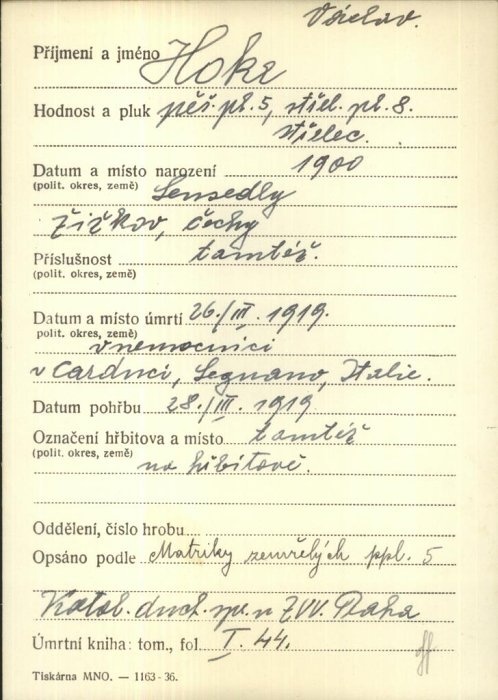 Václav.
Příjmení a jméno Hoke
Hodnost a pluk pěš. pl. 5, střel. pl. 8.
střelec.
Datum a místo narození 1900
(polit. okres, země) Sensedly
Žižkov, Čechy
Příslušnost tamtéž.
(polit. okres, země)
Datum a místo úmrtí 26./III. 1919.
polit. okres, země)
v nemocnici
v Carducci, Legnano, Italie.
Datum pohřbu 28./III. 1919
Označení hřbitova a místo tamtéž
(polit. okres, země)
na hřbitově.
Oddělení, číslo hrobu
Opsáno podle Matriky zemřelých ppl. 5
Katol. duch. spr. u ZVV. Praha
Úmrtní kniha: tom., fol. I. 44.
Tiskárna MNO. — 1163-36.